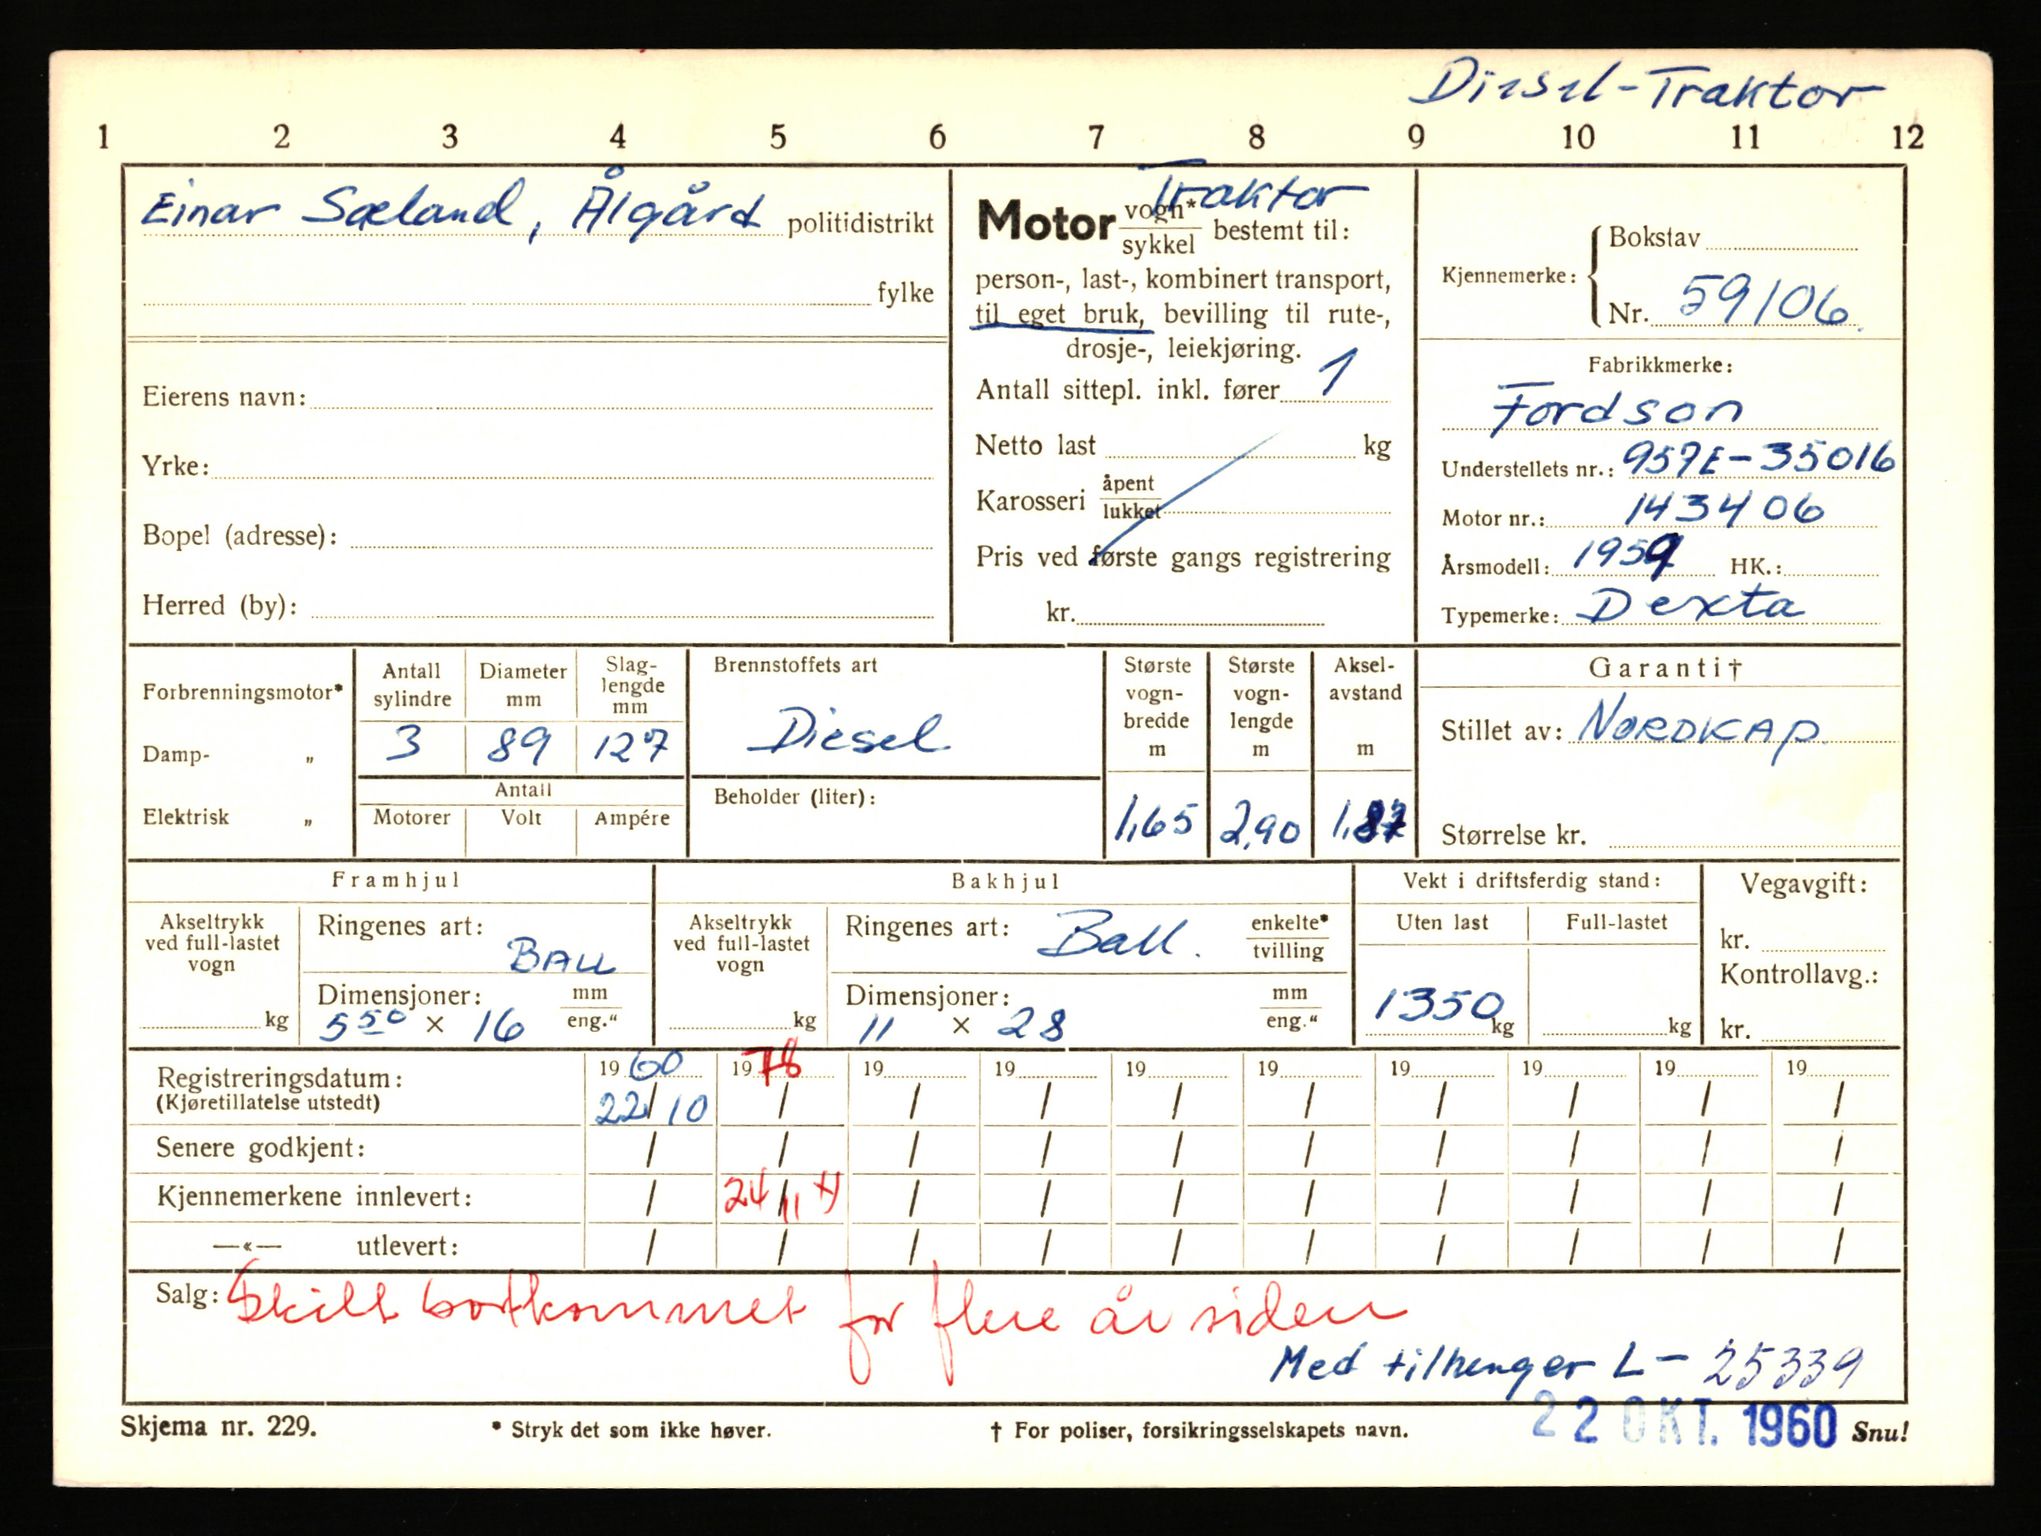 Diesel-Traktor
1 2 3 4 5 6 7 8 9 10 11 12
Einar Sæland, Ålgård politidistrikt
fylke
Eierens navn:
Yrke:
Bopel (adresse):
Herred (by):
Traktor
Motor vogn*
sykkel bestemt til:
person-, last-, kombinert transport,
til eget bruk, bevilling til rute-,
drosje-, leiekjøring.
Antall sittepl. inkl. fører 1
Netto last kg
Karosseri åpent
lukket
Pris ved første gangs registrering
kr.
Kjennemerke: Bokstav
Nr. 59106
Fabrikkmerke:
Fordson
Understellets nr.: 957E-35016
Motor nr.: 143406
Årsmodell: 1959 HK.:
Typemerke: Dexta
Forbrenningsmotor*
Damp- "
Elektrisk "
Antall sylindre
Diameter mm
Slag-lengde mm
3 89 127
Antall
Motorer Volt Ampére
Brennstoffets art
Diesel
Beholder (liter):
Største vogn-bredde m
1,65
Største vogn-lengde m
2,90
Aksel-avstand m
Garanti†
Stillet av: NORDKAP
Størrelse kr.
Framhjul
Akseltrykk ved full-lastet vogn
kg
Ringenes art:
BALL
Dimensjoner: mm
eng."
5 50 × 16
Bakhjul
Akseltrykk ved full-lastet vogn
kg
Ringenes art: Ball. enkelte*
tvilling
Dimensjoner: mm
eng."
11 × 28
Vekt i driftsferdig stand:
Uten last Full-lastet
1350 kg kg
Vegavgift:
kr.
Kontrollavg.:
kr.
Registreringsdatum: 1960 1978 19 19 19 19 19 19 19 19
(Kjøretillatelse utstedt) 22/10 / / / / / / / / /
Senere godkjent: / / / / / / / / / /
Kjennemerkene innlevert: / 24/11 / / / / / / / /
—«— utlevert: / / / / / / / / / /
Salg: Skilt bortkommet for flere år siden
Med tilhenger L- 25339
22 OKT. 1960
Skjema nr. 229. * Stryk det som ikke høver. † For poliser, forsikringsselskapets navn. Snu!